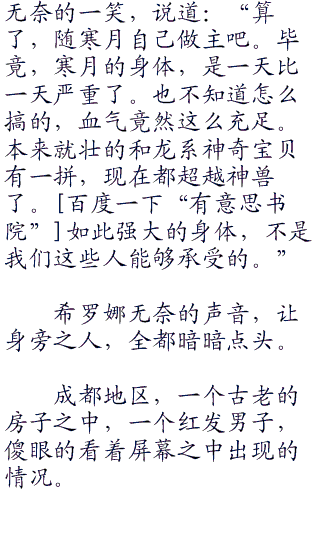 无奈的一笑，说道：“算
了，随寒月自己做主吧。毕
竟，寒月的身体，是一天比
一天严重了。也不知道怎么
搞的，血气竟然这么充足。
本来就壮的和龙系神奇宝贝
有一拼，现在都超越神兽
了。[百度一下“有意思书
院”]如此强大的身体，不是
我们这些人能够承受的。”
希罗娜无奈的声音，让
身旁之人，全都暗暗点头。
成都地区，一个古老的
房子之中，一个红发男子，
傻眼的看着屏幕之中出现的
情况。